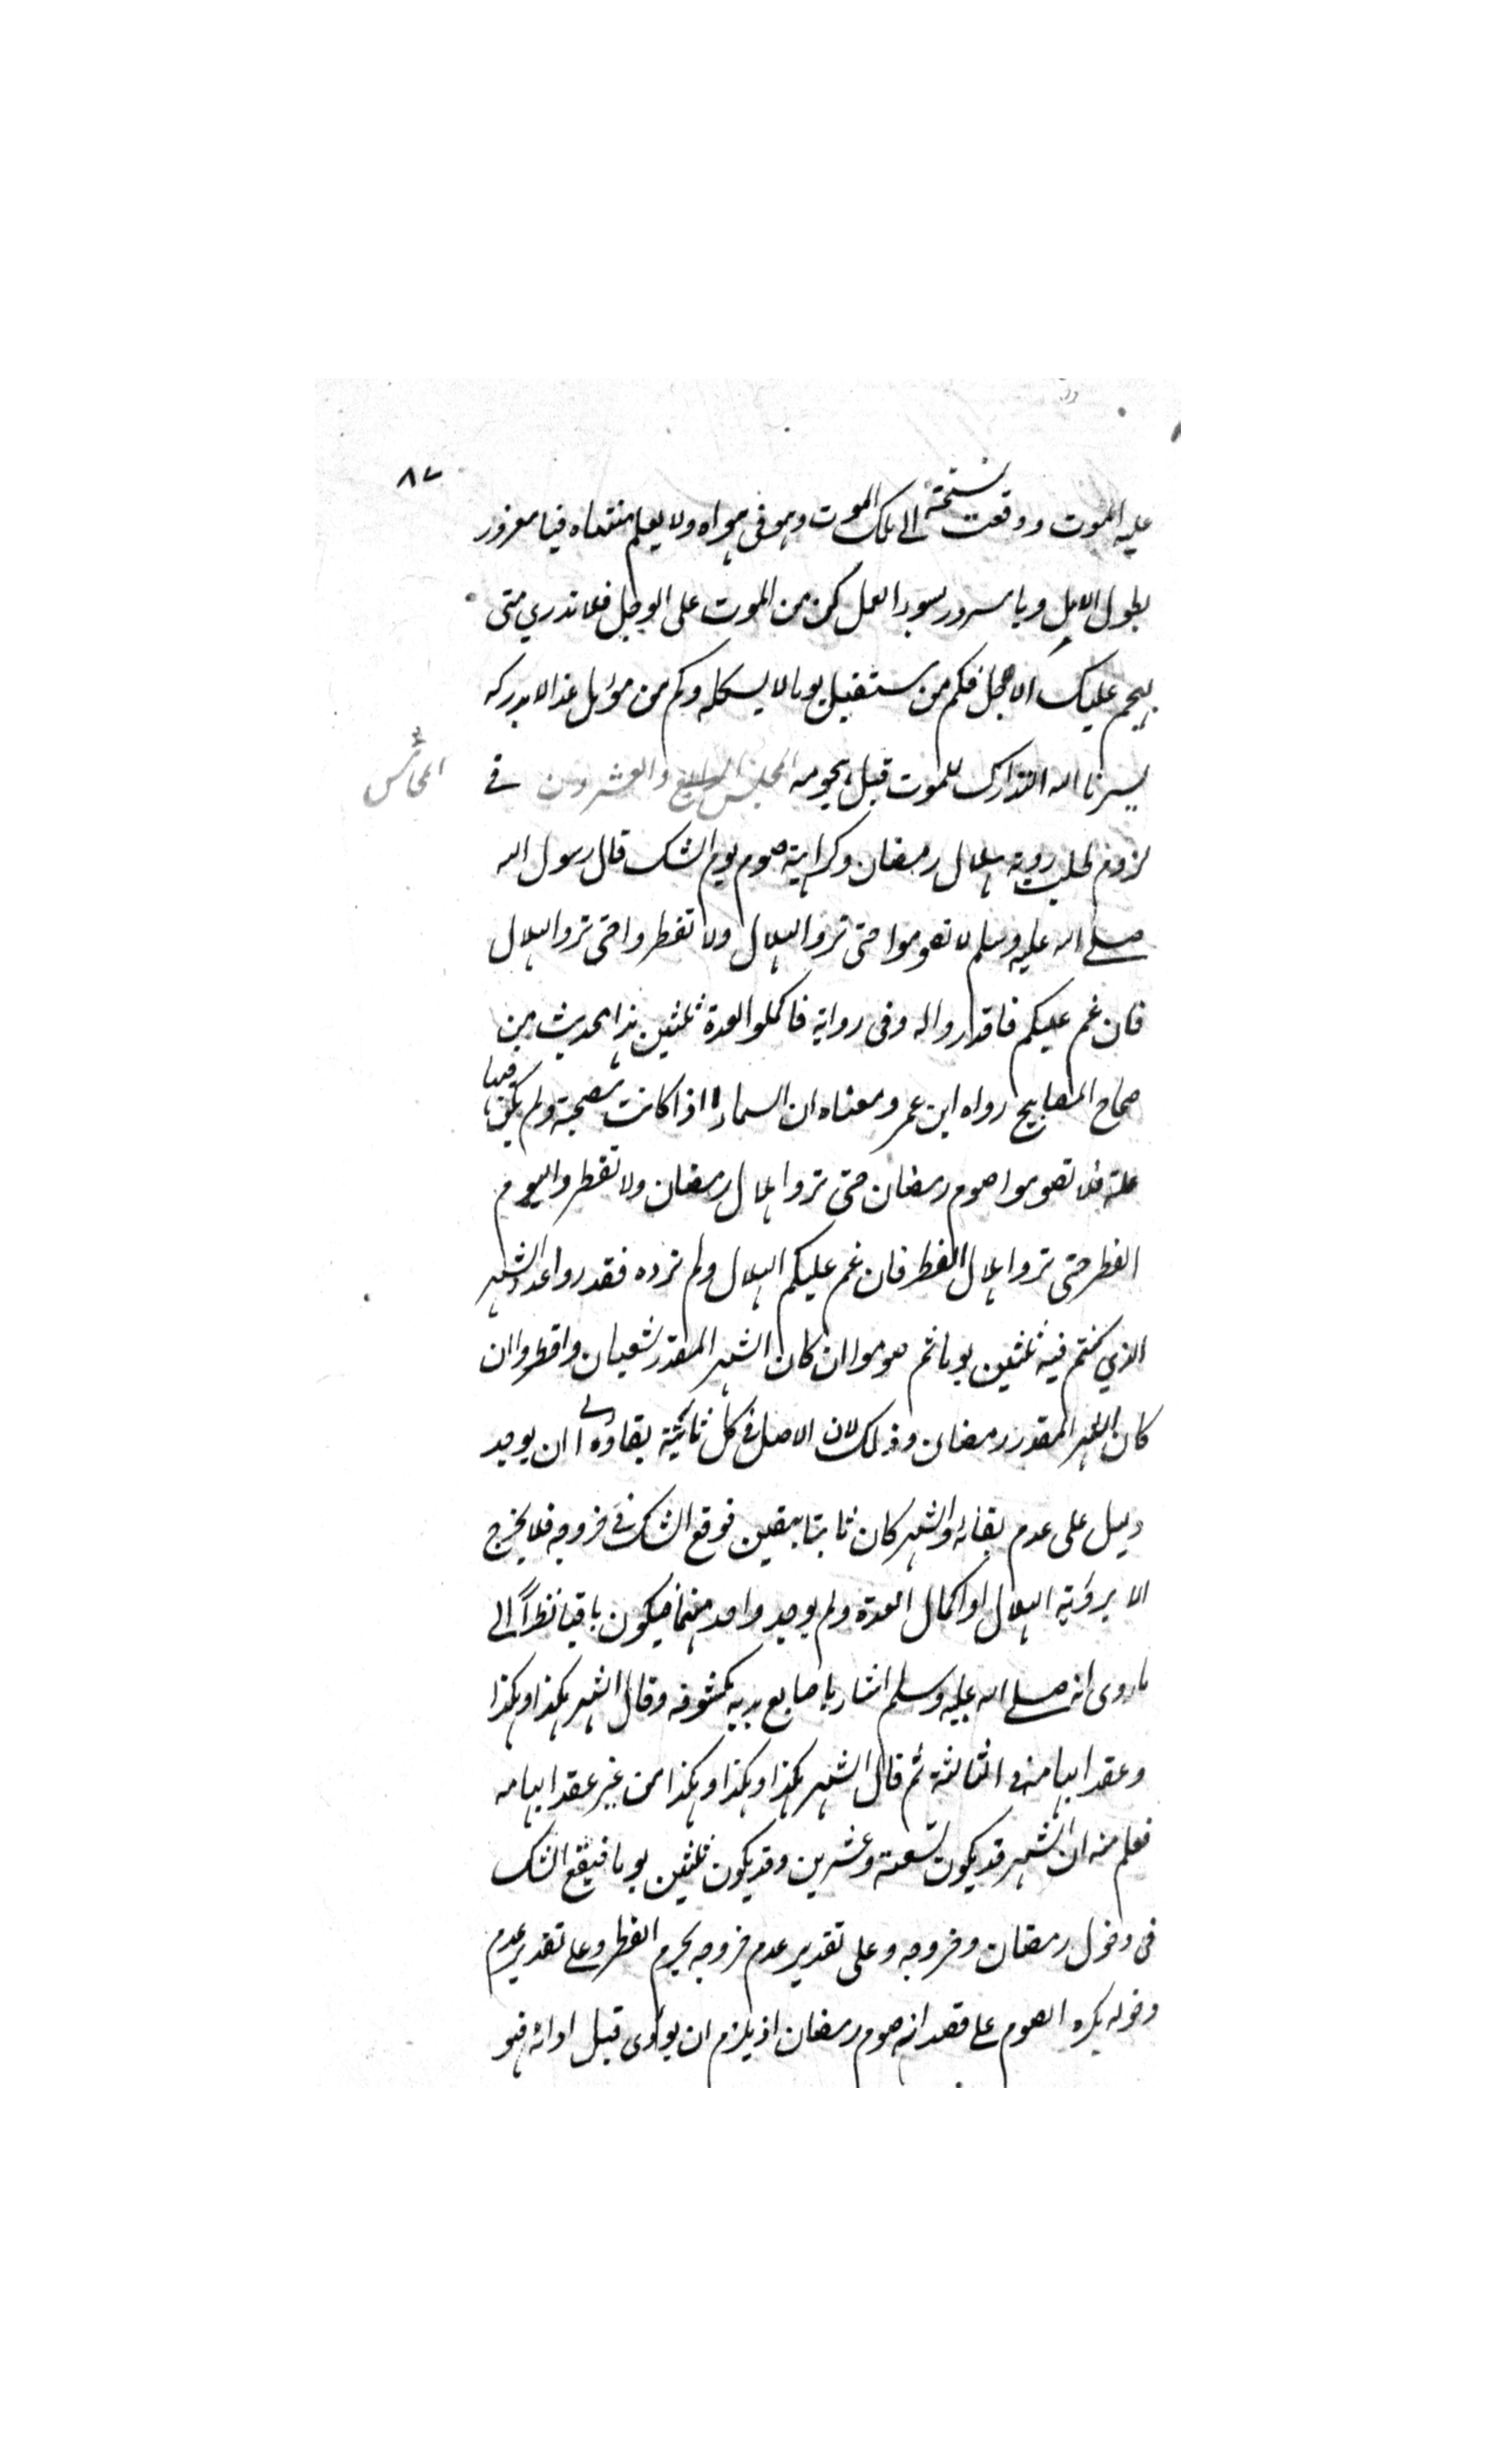 ٨٧
عليه الموت ووقعت نسخته الى ملك الموت وهو في هواه ولا يعلم منتهاه فيا مغرور
بطول الامل ويا مسرور بسوء العمل كن من الموت على الوجل فلا تدري متى
يهجم عليك الاجل فكم من مستقبل يوما لا يستكمله وكم من مؤمل غدا لا يدركه
يسرنا الله التدارك للموت قبل هجومه المجلس الرابع والعشرون في
الخامس
لزوم طلب روية هلال رمضان وكراهية صوم يوم الشك قال رسول الله
صلى الله عليه وسلم لا تصوموا حتى تروا الهلال ولا تفطروا حتى تروا الهلال
فان غم عليكم فاقدروا له وفي رواية فاكملوا العدة ثلثين هذا الحديث من
صحاح المصابيح رواه ابن عمر ومعناه ان السماء اذا كانت مصحية ولم يكن فيها
علة فلا تصوموا صوم رمضان حتى تروا هلال رمضان ولا تفطروا اليوم
الفطر حتى تروا هلال الفطر فان غم عليكم الهلال ولم تروه فقدروا عدد الشهر
الذي كنتم فيه ثلثين يوما ثم صوموا ان كان الشهر المقدر شعبان وافطروا ان
كان الشهر المقدر رمضان وذلك لان الاصل في كل ثابت بقاؤه الى ان يوجد
دليل على عدم بقائه والشهر كان ثابتا بيقين فوقع الشك في خروجه فلا يخرج
الا برؤية الهلال او اكمال العدة ولم يوجد واحد منهما فيكون باقيا نظراً الى
ما روى انه صلى الله عليه وسلم اشار باصابع يديه مكشوفة وقال الشهر هكذا وهكذا
وعقد ابهامه في الثالثة ثم قال الشهر هكذا وهكذا وهكذا من غير عقد ابهامه
فعلم منه ان الشهر قد يكون تسعة وعشرين وقد يكون ثلثين يوما فيقع الشك
في دخول رمضان وخروجه وعلى تقدير عدم خروجه يحرم الفطر وعلى تقدير عدم
دخوله يكره الصوم على قصد انه صوم رمضان اذ يلزم ان يؤدى قبل اوانه فهو